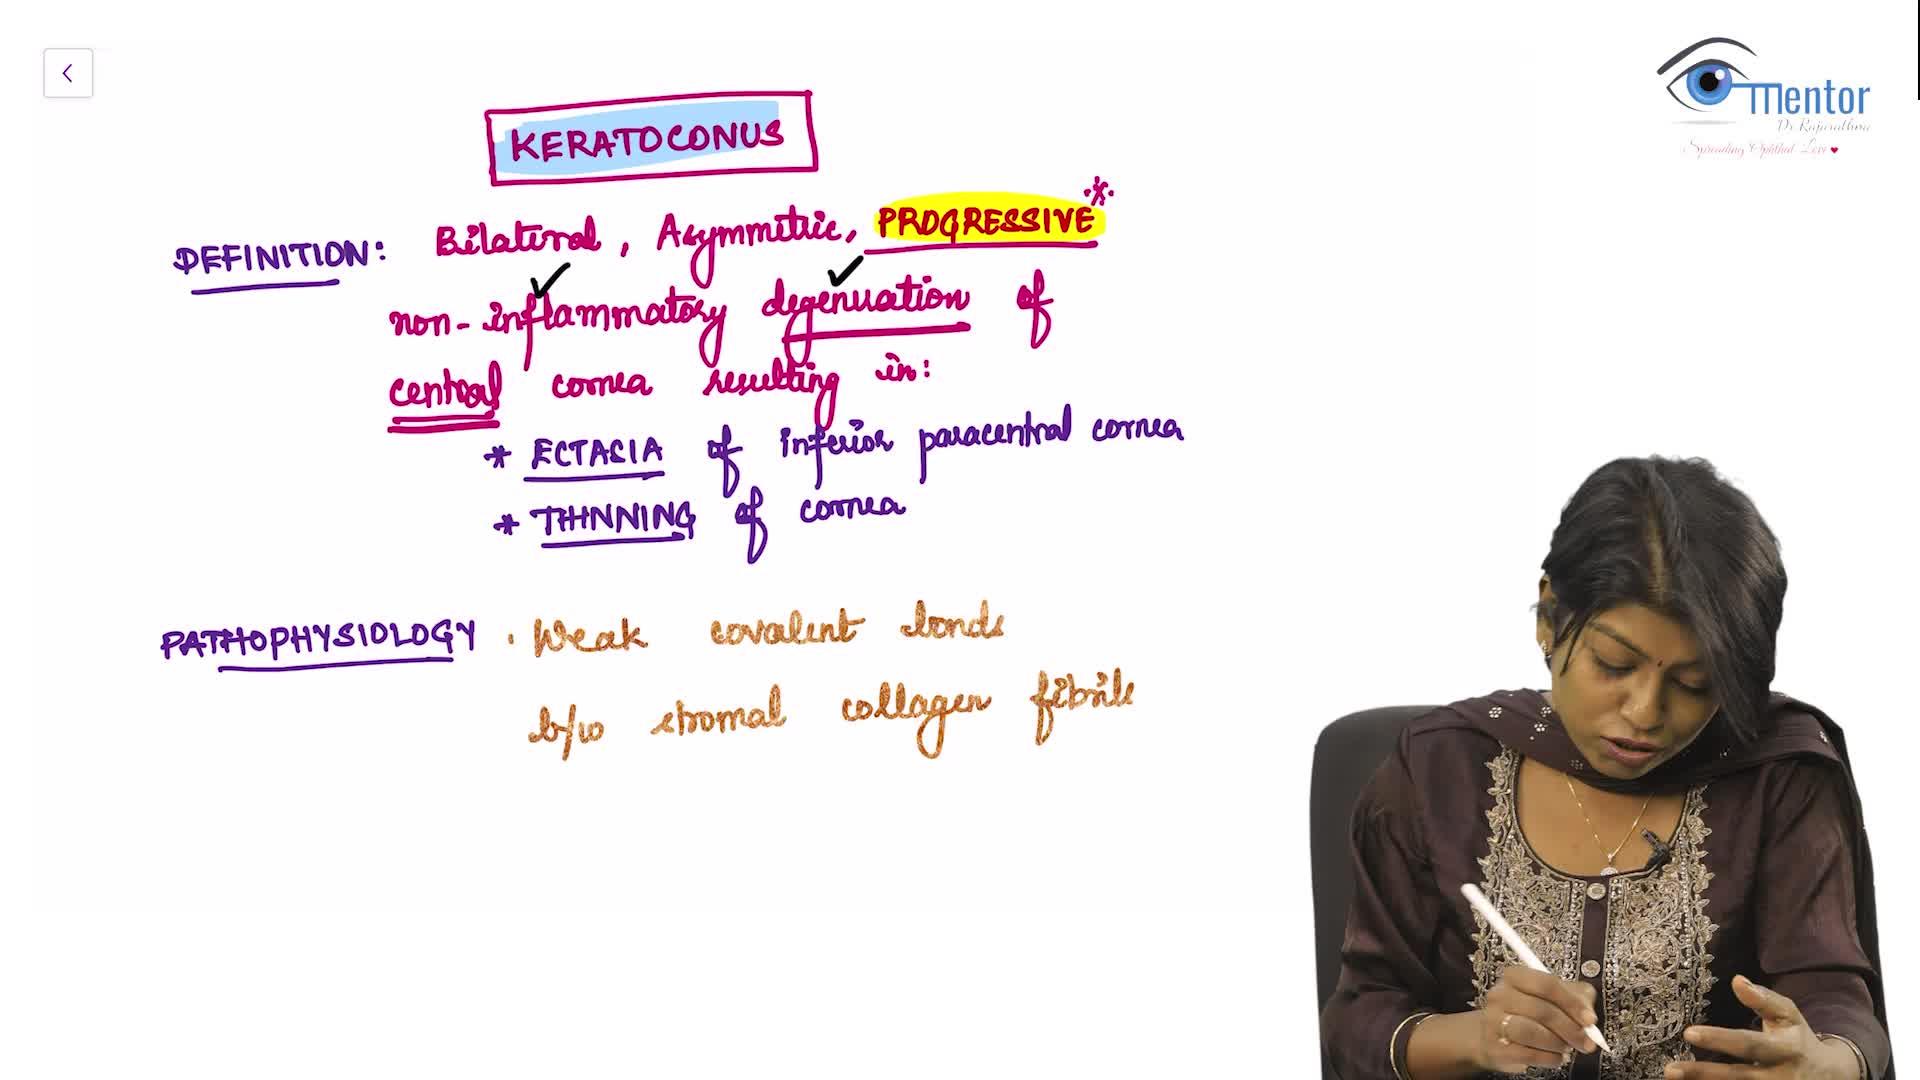 mentor
Dr Rajarathna
Spreading Ophthal Love
KERATOCONUS
DEFINITION: Bilateral, Asymmetric, PROGRESSIVE*
non-inflammatory degeneration of
central cornea resulting in:
* ECTASIA of inferior paracentral cornea
* THINNING of cornea
PATHOPHYSIOLOGY • Weak covalent bonds
b/w stromal collagen fibrils